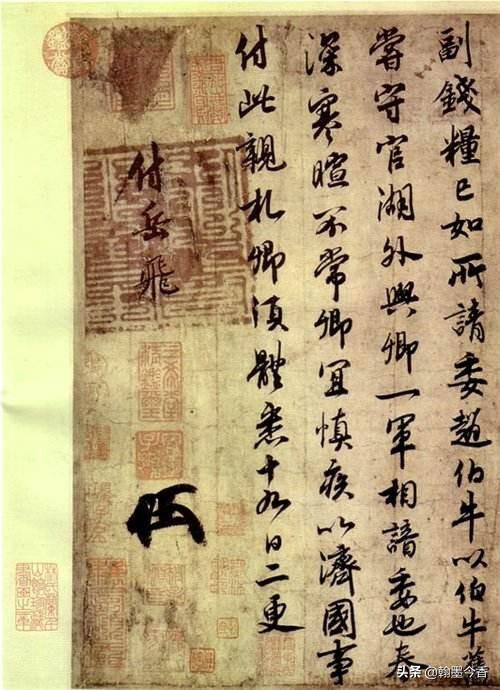 副錢糧已如所請委趙伯牛以伯牛舊
嘗守官湖外與卿一軍相諳委也春
深寒暄不常卿宜慎疾以濟國事
付此親札卿須體悉十九日二更
付岳飛
头条 @翰墨今香